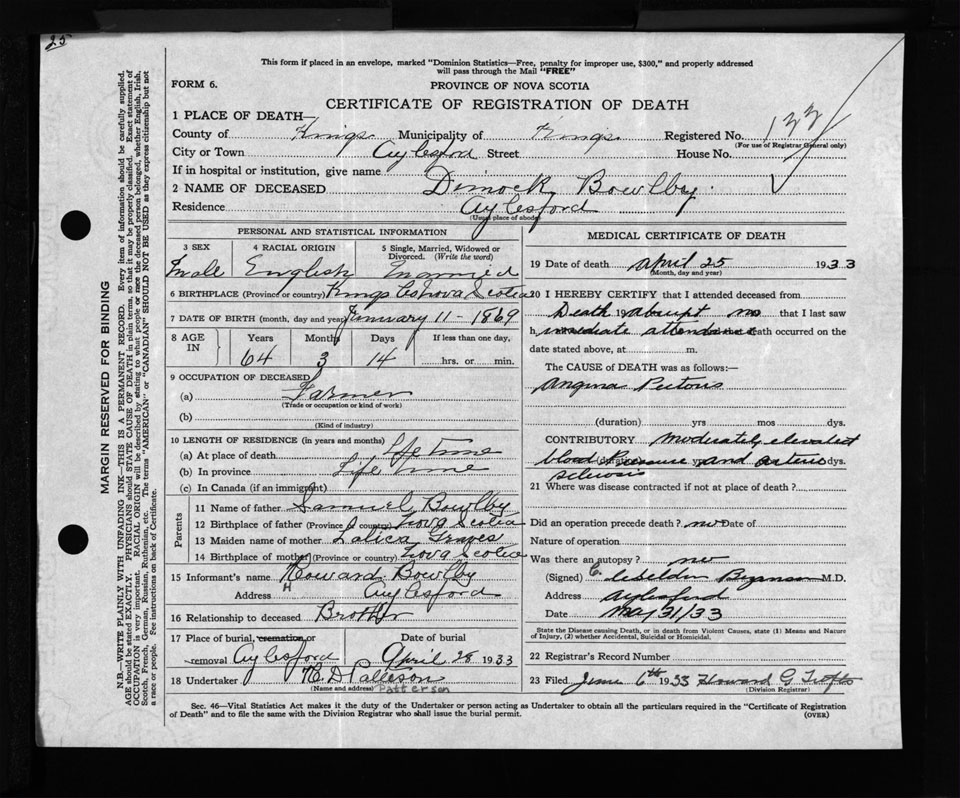 25
This form if placed in an envelope, marked "Dominion Statistics—Free, penalty for improper use, $300," and properly addressed
will pass through the Mail "FREE"
FORM 6.
PROVINCE OF NOVA SCOTIA
CERTIFICATE OF REGISTRATION OF DEATH
1 PLACE OF DEATH—
County of Kings Municipality of Kings Registered No. 133
(For use of Registrar General only)
City or Town Aylesford Street House No.
If in hospital or institution, give name
2 NAME OF DECEASED Dimock Bowlby
Residence Aylesford
(Usual place of abode)
PERSONAL AND STATISTICAL INFORMATION
3 SEX 4 RACIAL ORIGIN 5 Single, Married, Widowed or Divorced. (Write the word)
male English married
6 BIRTHPLACE (Province or country) Kings Co Nova Scotia
7 DATE OF BIRTH (month, day and year) January 11 - 1869
8 AGE IN Years Months Days If less than one day,
64 3 14 hrs. or min.
9 OCCUPATION OF DECEASED
(a) Farmer
(Trade or occupation or kind of work)
(b)
(Kind of industry)
10 LENGTH OF RESIDENCE (in years and months)
(a) At place of death Life time
(b) In province Life time
(c) In Canada (if an immigrant)
Parents
11 Name of father Samuel Bowlby
12 Birthplace of father (Province or country) Nova Scotia
13 Maiden name of mother Graves
14 Birthplace of mother (Province or country) Nova Scotia
15 Informant's name Howard Bowlby
H
Address Aylesford
16 Relationship to deceased Brother
17 Place of burial, cremation or removal Aylesford
Date of burial April 28 1933
18 Undertaker
(Name and address) Patterson
MEDICAL CERTIFICATE OF DEATH
19 Date of death April 25 1933
(Month, day and year)
20 I HEREBY CERTIFY that I attended deceased from
Death abrupt no that I last saw
h immediate attendance death occurred on the
date stated above, at m.
The CAUSE of DEATH was as follows:—
Angina Pectoris
(duration) yrs mos dys.
CONTRIBUTORY moderately elevated
blood Pressure and arterio dys.
sclerosis
21 Where was disease contracted if not at place of death?
Did an operation precede death? no Date of
Nature of operation
Was there an autopsy? no
(Signed) M.D.
Address Aylesford
Date May 31/33
State the Disease causing Death, or in death from Violent Causes, state (1) Means and Nature
of Injury, (2) whether Accidental, Suicidal or Homicidal.
22 Registrar's Record Number
23 Filed June 6th 1933 Howard G
(Division Registrar)
Sec. 46—Vital Statistics Act makes it the duty of the Undertaker or person acting as Undertaker to obtain all the particulars required in the "Certificate of Registration
of Death" and to file the same with the Division Registrar who shall issue the burial permit.
(OVER)
MARGIN RESERVED FOR BINDING
N.B.—WRITE PLAINLY WITH UNFADING INK—THIS IS A PERMANENT RECORD. Every item of information should be carefully supplied.
AGE should be stated EXACTLY. PHYSICIANS should STATE CAUSE OF DEATH in plain terms, so that it may be properly classified. Exact statement of
OCCUPATION is very important. RACIAL ORIGIN will be described by stating to what people or race the deceased person belonged, whether English, Irish,
Scotch, French, German, Russian, Ruthenian, etc. The terms "AMERICAN" or "CANADIAN" SHOULD NOT BE USED as they express citizenship but not
a race or people. See instructions on back of Certificate.